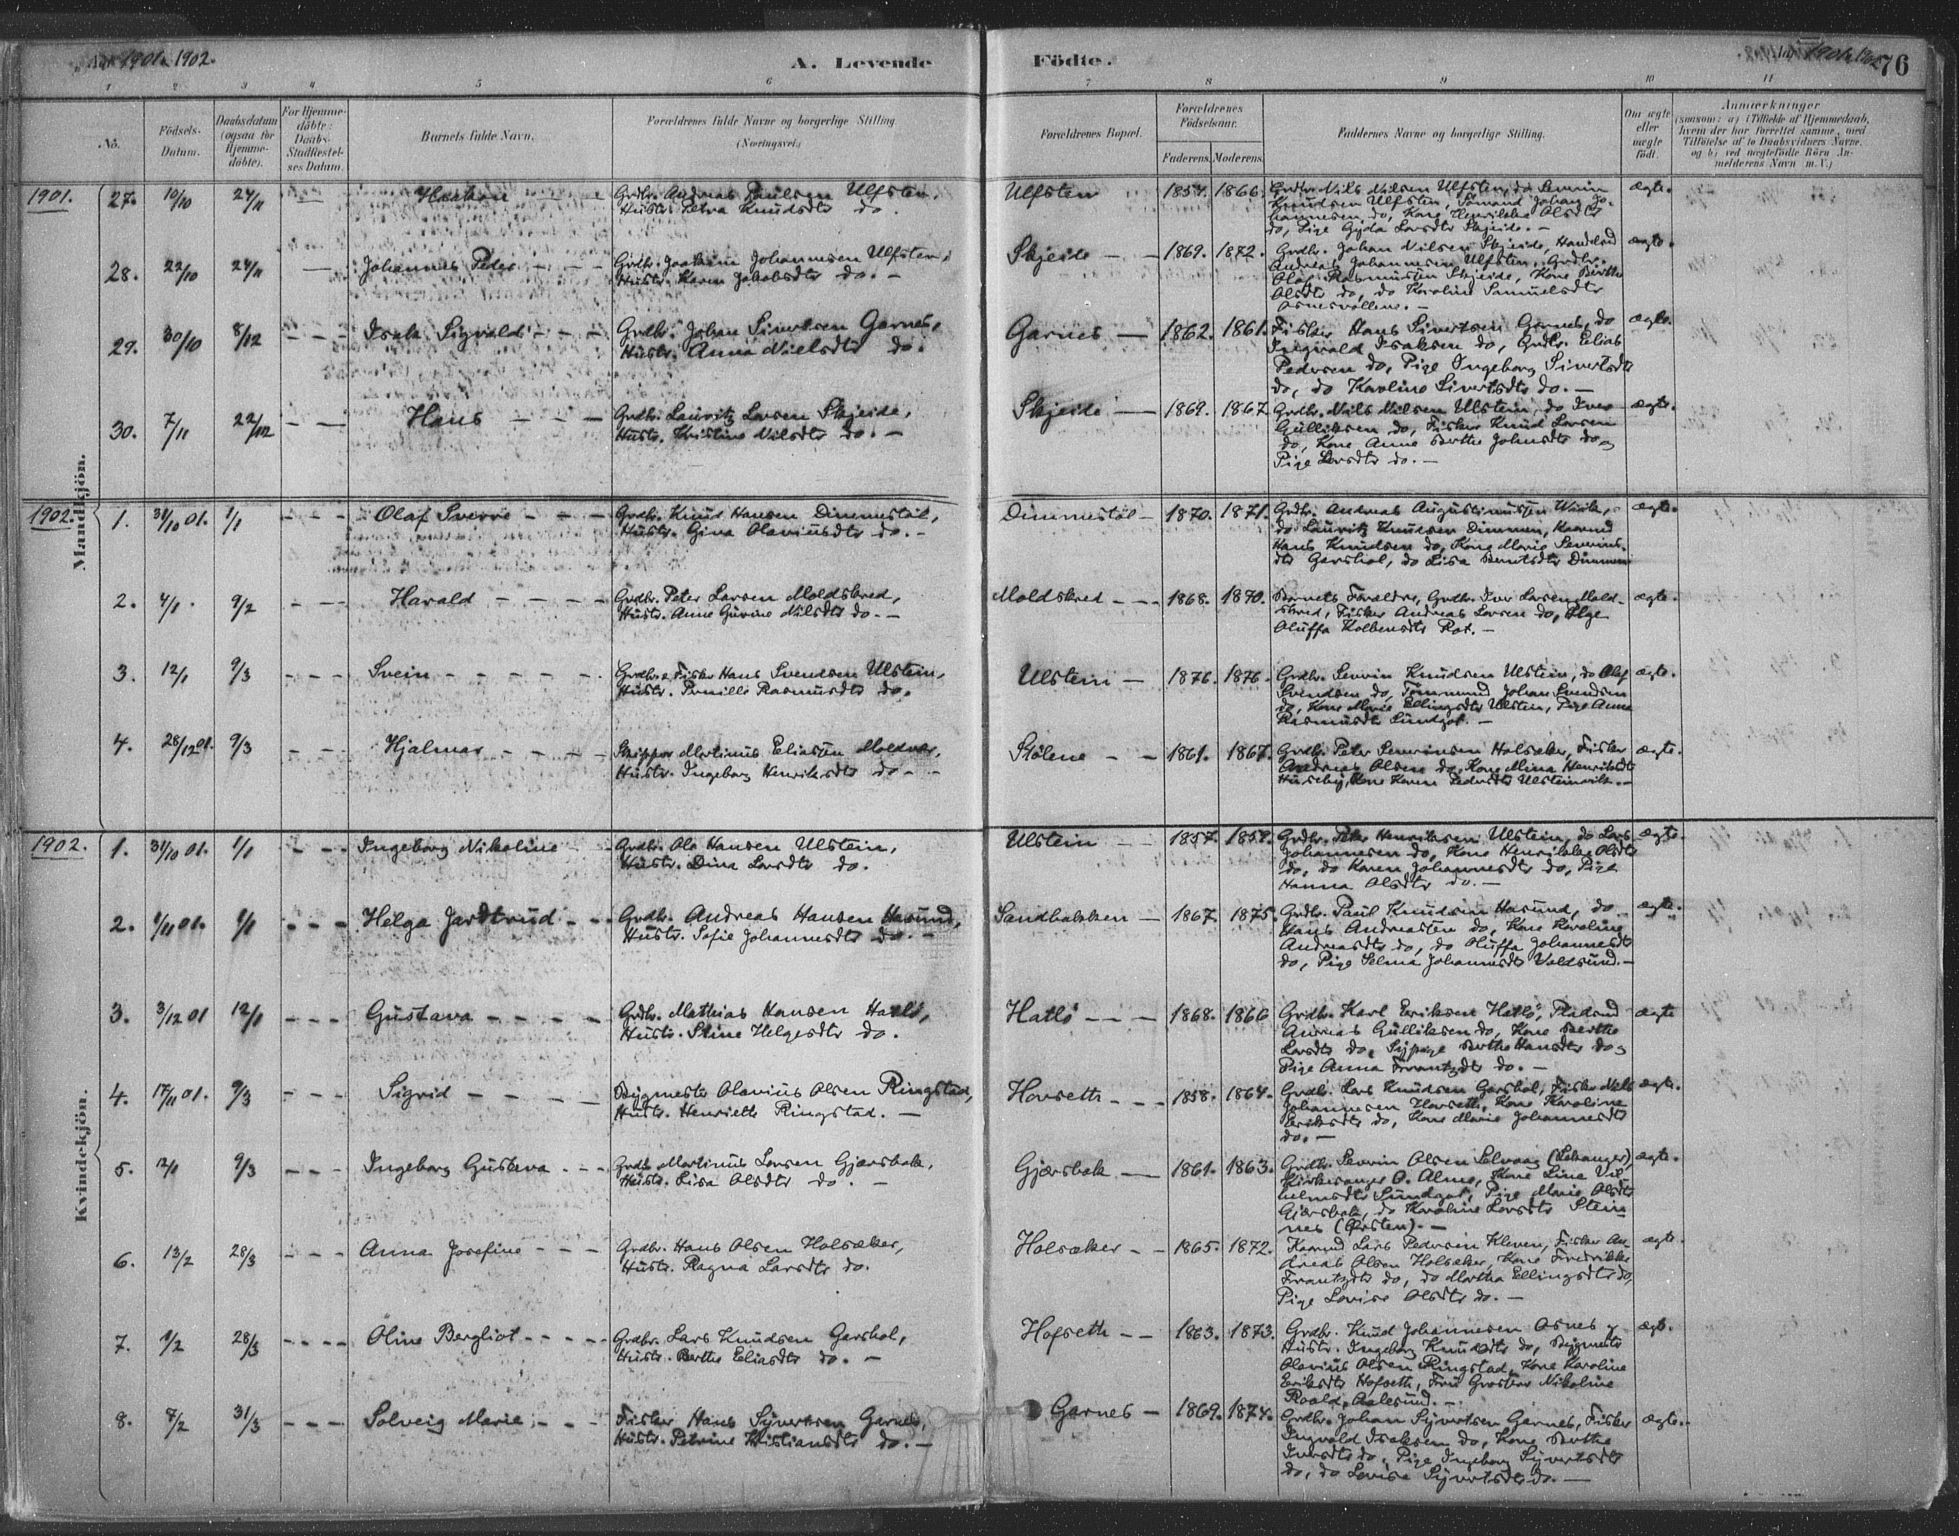 Aar 1901. 1902.
A. Levende
Födte.
Aar 1901. 1902.
76
1 2 3 4 5 6 7 8 9 10 11
No.
Födsels-
Datum.
Daabsdatum
(ogsaa for
Hjemme-
döbte).
For Hjemme-
döbte:
Daabs-
Stadfæstel-
ses Datum.
Barnets fulde Navn.
Forældrenes fulde Navne og borgerlige Stilling
(Næringsvei.)
Forældrenes Bopæl.
Forældrenes
Födselsaar.
Faderens. Moderens.
Faddernes Navne og borgerlige Stilling.
Om ægte
eller
uægte
født.
Anmærkninger
(saasom: a) i Tilfælde af Hjemmedaab,
hvem der har forrettet samme, med
Tilföielse af to Daabsvidners Navne,
og b) ved uægtefödte Börn An-
melderens Navn m. V.)
Mandkjön.
1901.
27. 10/10 24/11 Haakon
Grdbr. Andreas Paulsen Ulfsten,
Hustr. Petra Knudsdtr do.
Ulfsten 1857. 1866.
Grdbr. Nils Nilsen Ulfsten, do Severin
Knudsen Ulfsten, Sømand Johan Jo-
hannesen do, Kone Henrikke Olsdtr
do, Pige Gyda Larsdtr Skjeide. —
ægte.
28. 22/10 24/11 Johannes Peder
Grdbr. Joakim Johannesen Ulfsten,
Hustr. Karen Jakobsdtr do. —
Skjeide 1869. 1872.
Grdbr. Johan Nilsen Skjeide, Handelsd
Andreas Johannesen Ulfsten, Grdbr.
Olaf Rasmussen Skjeide, Kone Berthe
Olsdtr do, do Karoline Samuelsdtr
Osnesvollene. —
ægte.
29. 30/10 8/12 Isak Sigvald
Grdbr. Johan Sivertsen Garnes,
Hustr. Anna Nielsdtr do.
Garnes 1862. 1861.
Fisker Hans Sivertsen Garnes, do
Ingvald Isaksen do, Grdbr. Elias
Pedersen do, Pige Ingeborg Sivertsdtr
do, do Karoline Sivertsdtr do. —
ægte.
30. 7/11 22/12 Hans
Grdbr. Lauritz Larsen Skjeide,
Hustr. Kristine Nilsdtr do. —
Skjeide 1869. 1867
Grdbr. Nils Nilsen Ulstein, do Iver
Gulliksen do, Fisker Knud Larsen
do, Kone Anne Berthe Johnsdtr do,
Pige Larsdtr do. —
ægte.
1902.
1. 31/10 01. 1/1 Olaf Sverre
Grdbr. Knud Hansen Dimmestøl,
Hustr. Gina Olaviusdtr do. —
Dimmestøl 1870. 1871.
Grdbr. Andreas Augustinussen Wiik,
do Lauritz Knudsen Dimmen, Kaarmd
Hans Knudsen do, Kone Marie Severins-
dtr Garshol, do Lisa Berntsdtr Dimmen
ægte.
2. 4/1. 9/2 Harald
Grdbr. Peter Larsen Moldskred,
Hustr. Anne Gurine Nilsdtr do. —
Moldskred 1868. 1870.
Barnets Forældre, Grdbr. Iver Larsen Mold-
skred, Fisker Andreas Larsen do, Pige
Oluffa Kolbensdtr Rot. —
ægte.
3. 12/1 9/3 Svein
Grdbr. & Fisker Hans Svendsen Ulstein,
Hustr. Pernille Rasmusdtr do.
Ulstein 1876. 1876.
Grdbr. Severin Knudsen Ulstein, do Olaf
Svendsen do, Tømmermd Johan Svendsen
do, Kone Marie Ellingsdtr Ulsten, Pige Anna
Rasmusdtr Sundgot. —
ægte.
4. 28/12 01. 9/3 Hjalmar
Skipper Martinus Eliassen Moldvær,
Hustr. Ingeborg Henriksdtr do —
Stølene 1861. 1867.
Grdbr. Peter Severinsen Holsæker, Fisker
Andreas Olsen do, Kone Mina Henriksdtr
Huseby, Kone Karen Pedersdtr Ulsteinvik. —
ægte.
Kvindekjön.
1902.
1. 31/10 01. 1/1 Ingeborg Nikoline
Grdbr. Ole Hansen Ulstein,
Hustr. Dina Larsdtr do.
Ulstein 1857. 1859.
Grdbr. Peter Henriksen Ulstein, do Lars
Johannesen do, Kone Henrikke Olsdtr
do, do Karen Johannesdtr do, Pige
Hanna Olsdtr do. —
ægte.
2. 1/11 01. 1/1 Helga Jardtrud
Grdbr. Andreas Hansen Hasund,
Hustr. Sofie Johannesdtr do. —
Sandbakken 1867. 1875.
Grdbr. Paul Knudsen Hasund, do
Hans Andreassen do, Kone Karoline
Andreasdtr do, do Oluffa Johannesdtr
do, Pige Selma Johannesdtr Voldsund. —
ægte.
3. 3/12 01 12/1 Gustava
Grdbr. Mathias Hansen Hatlø,
Hustr. Stine Helgesdtr do.
Hatlø 1868. 1866
Grdbr. Karl Eriksen Hatlø, Pladsmd
Andreas Gulliksen do, Kone Berthe
Larsdtr do, Sypige Berthe Hansdtr do,
Pige Anna Frantzdtr do. —
ægte
4. 17/11 01. 9/3 Sigrid
Bygmester Olavius Olsen Ringstad,
Hustr. Henriette Ringstad. —
Hovseth 1858. 1864.
Grdbr. Lars Knudsen Garshol, Fisker Nils
Johannesen Hovseth, Kone Karoline
Eriksdtr do, Kone Marie Johannesdtr
do. —
ægte.
5. 12/1 9/3 Ingeborg Gustava
Grdbr. Martinus Larsen Gjærsbak,
Hustr. Lisa Olsdtr do. —
Gjærsbak 1861. 1863.
Grdbr. Severin Olsen Selvaag (Lebanger),
Kirkesanger O. Alme, Kone Lina Vil-
helmsdtr Sundgot, Pige Marie Olsdtr
Gjærsbak, do Karoline Larsdtr Stein-
nes (Ørsten). —
ægte.
6. 13/2 28/3 Anna Josefine
Grdbr. Hans Olsen Holsæker,
Hustr. Ragna Larsdtr do.
Holsæker 1865. 1872.
Kaarmd Lars Pedersen Kleven, Fisker An-
dreas Olsen Holsæker, Kone Fredrikke
Frantzdtr do, do Martha Ellingsdtr do,
Pige Lovise Olsdtr do. —
ægte.
7. 1/2 28/3 Oline Bergliot
Grdbr. Lars Knudsen Garshol,
Hustr. Berthe Eliasdtr do. —
Hofseth 1863. 1873.
Grdbr. Knud Johannesen Osnes,
Hustr. Ingeborg Knudsdtr do, Bygmester
Olavius Olsen Ringstad, Kone Karoline
Eriksdtr Hofseth, Fru Nikoline
Roald, Aalesund. —
ægte.
8. 7/2 31/3 Solveig Marie
Fisker Hans Syvertsen Garnes,
Hustr. Petrine Kristiansdtr do. —
Garnes 1869. 1874.
Grdbr. Johan Syvertsen Garnes, Fisker
Ingvald Isaksen do, Kone Berthe
Iversdtr do, Pige Ingeborg Syvertsdtr
do, do Lovise Syvertsdtr do. —
ægte.